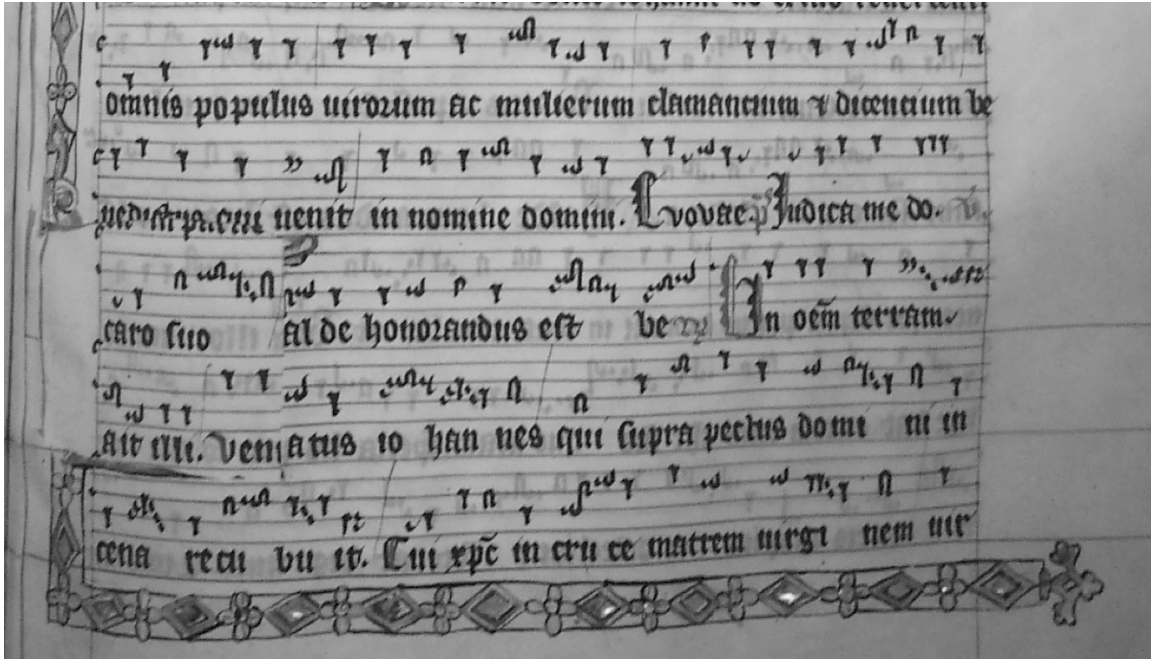 omnis populus uirorum ac mulierum clamancium ⁊ dicencium be
uenit in nomine domini. Euovae. p̄ Iudica me do.
caro suo al de honorandus est be In oēm terram
ait illi. Ven atus io han nes qui supra pectus domi ni in
cena recu bu it. Cui xp̄c in cru ce matrem uirgi nem uir